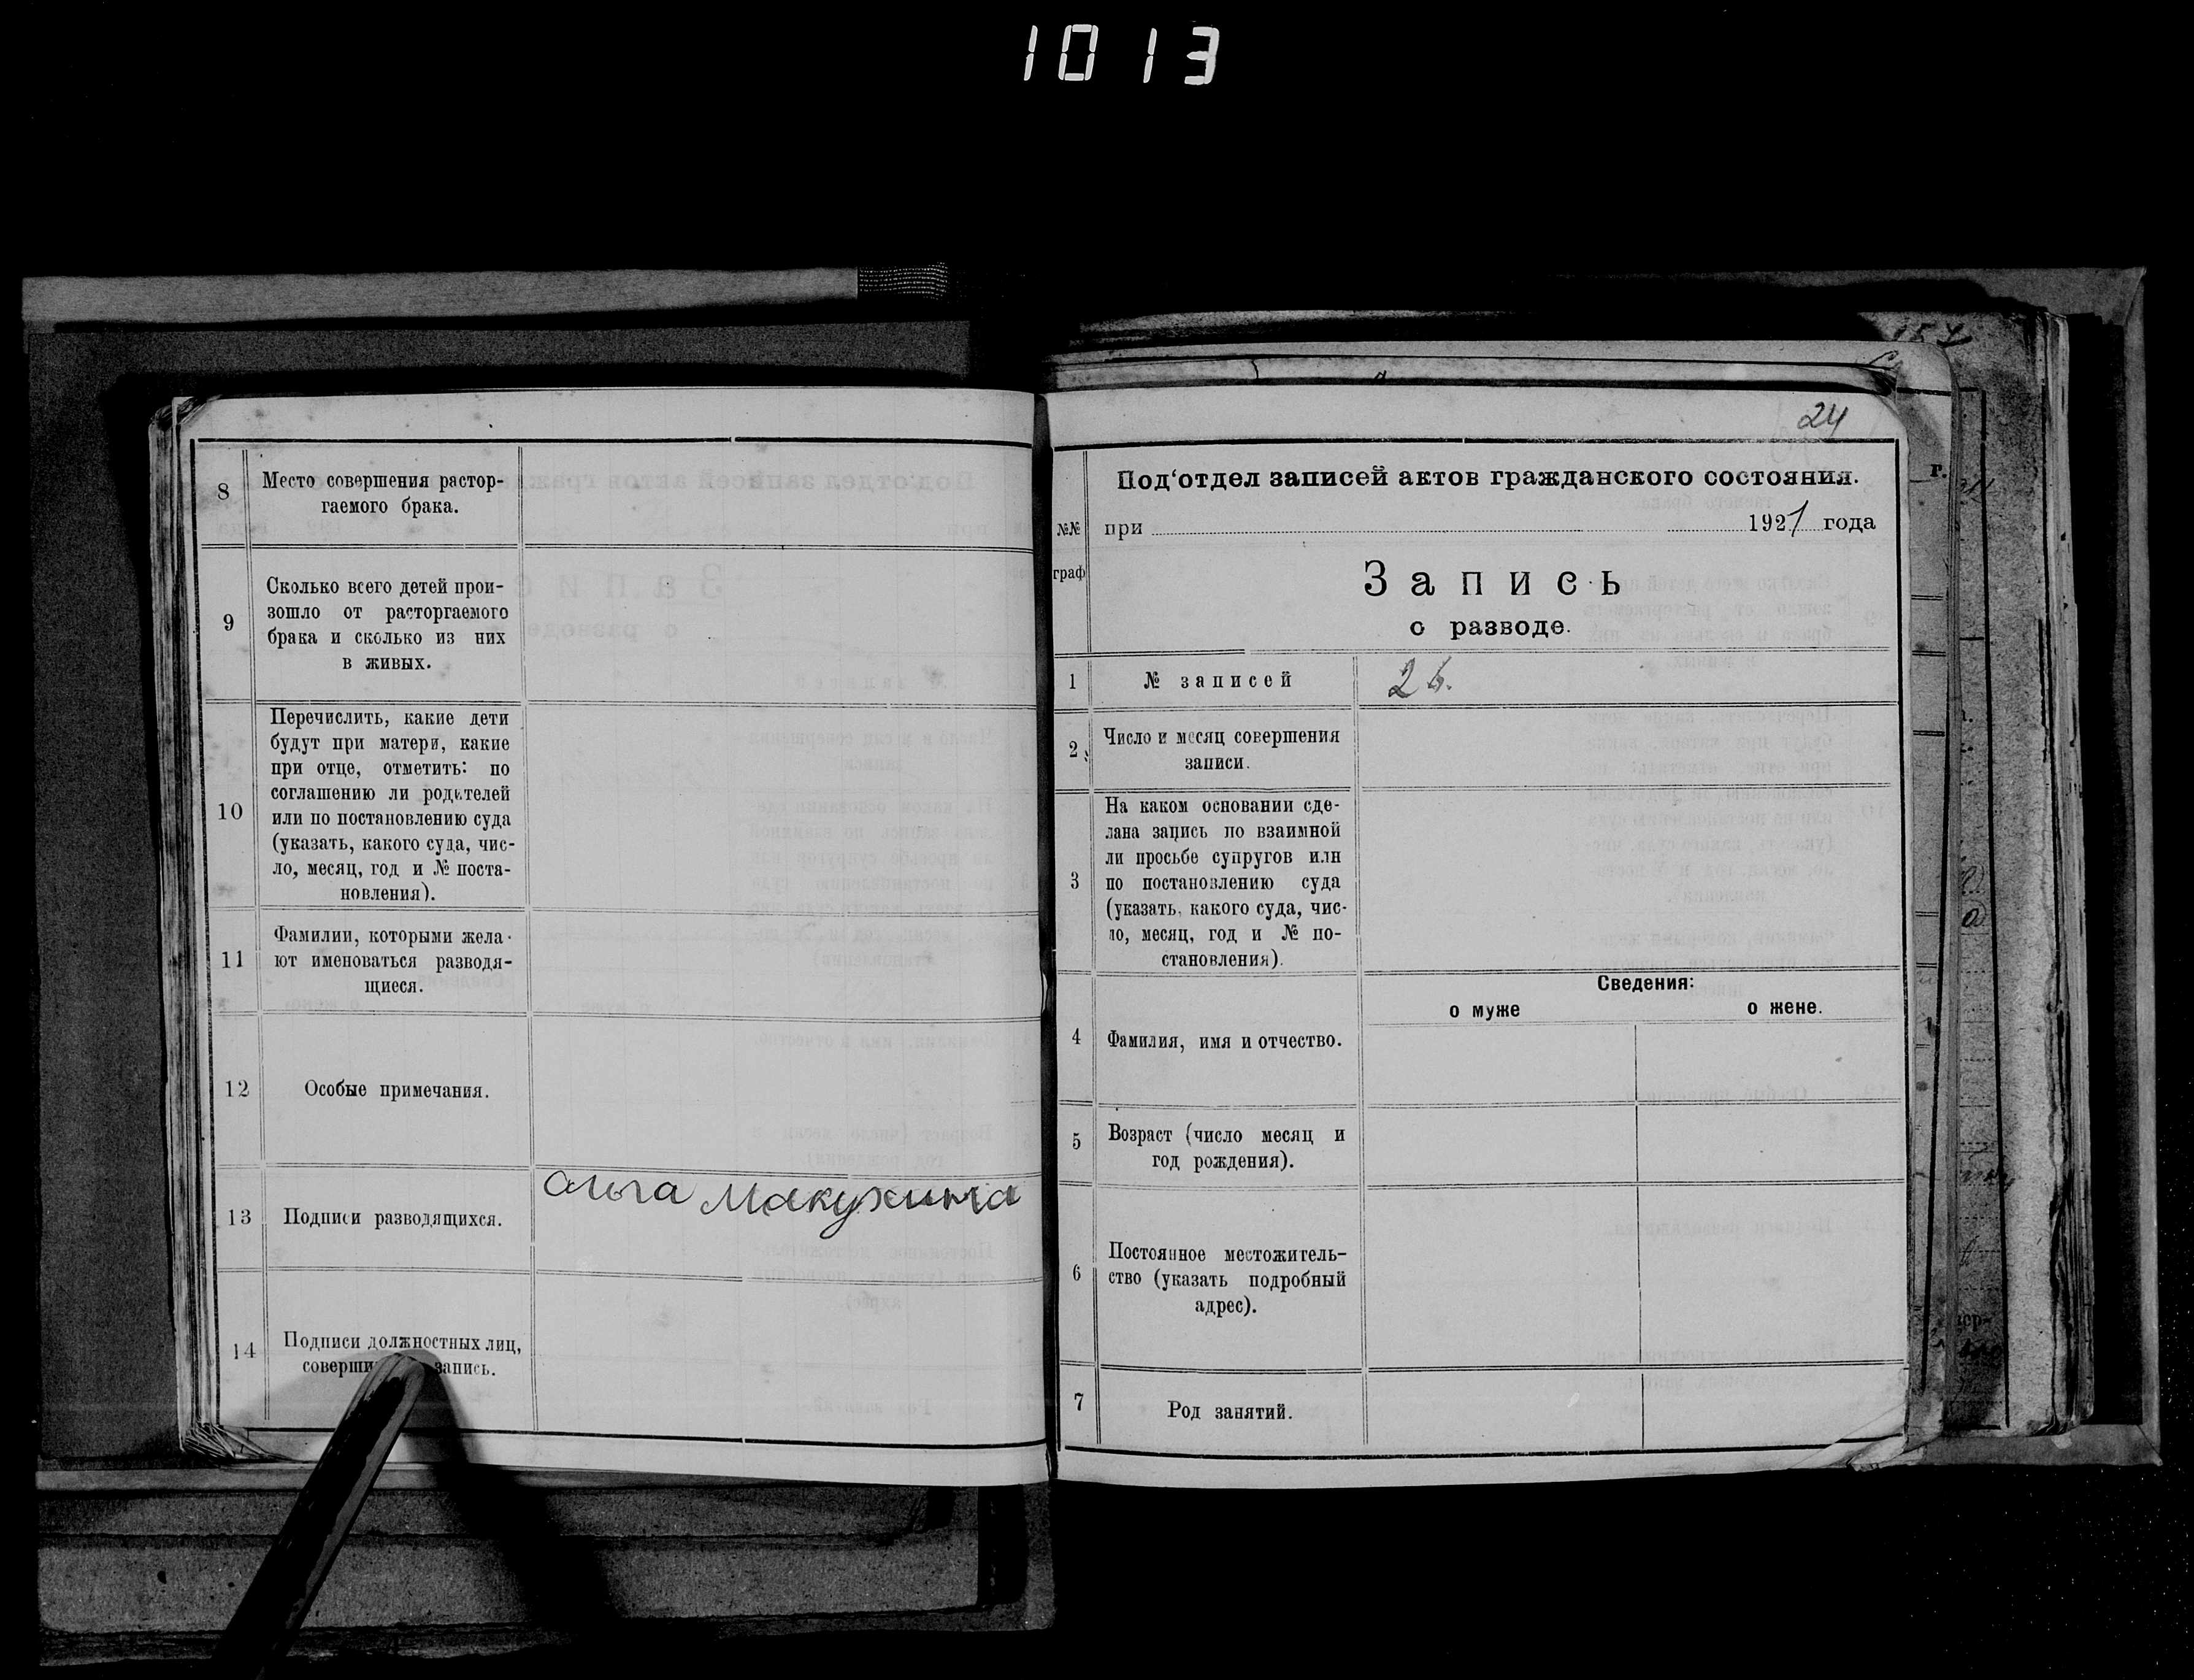 1013
8
Место совершения растор-
гаемого брака.
9
Сколько всего детей прои-
зошло от расторгаемого
брака и сколько из них
в живых.
10
Перечислить, какие дети
будут при матери, какие
при отце, отметить: по
соглашению ли родителей
или по постановлению суда
(указать, какого суда, чис-
ло, месяц, год и № поста-
новления).
11
Фамилии, которыми жела-
ют именоваться разводя-
щиеся.
12
Особые примечания.
13
Подписи разводящихся.
Ольга Макухина
14
Подписи должностных лиц,
соверши запись.
24
№№
граф
Под'отдел записей актов гражданского состояния.
при 1921 года
Запись
о разводе.
1
№ записей
26.
2
Число и месяц совершения
записи.
3
На каком основании сде-
лана запись по взаимной
ли просьбе супругов или
по постановлению суда
(указать, какого суда, чис-
ло, месяц, год и № по-
становления).
Сведения:
о муже о жене.
4
Фамилия, имя и отчество.
5
Возраст (число месяц и
год рождения).
6
Постоянное местожитель-
ство (указать подробный
адрес).
7
Род занятий.
г.